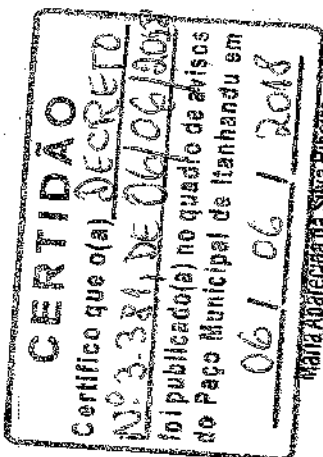 CERTIDÃO
Certifico que o(a) DECRETO
Nº 3.381, DE 06/06/2018
foi publicado(a) no quadro de avisos
do Paço Municipal de Itanhandu em
06 / 06 / 2018
Maria Aparecida da Silva